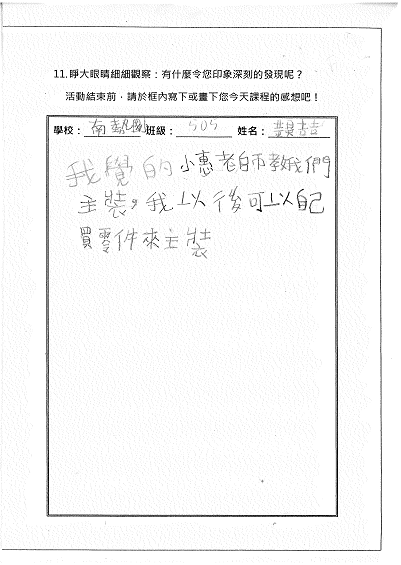 11.睜大眼睛細細觀察：有什麼令您印象深刻的發現呢？
活動結束前，請於框內寫下或畫下您今天課程的感想吧！
學校： 南勢國 班級： 505 姓名：
我覺的小惠老師教我們
主裝，我以後可以自己
買零件來主裝